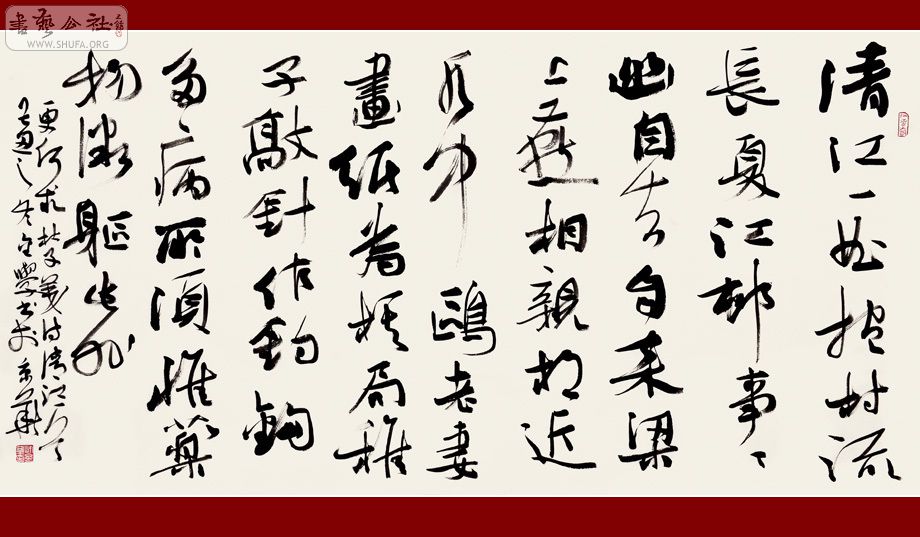 清江一曲抱村流
長夏江邨事〻
幽自去自来梁
上燕相親相近
水中鷗老妻
畫紙為棋局稚
子敲針作釣鉤
多病所須惟藥
物微軀此外
更何求杜子美詩清江
書藝公社
WWW.SHUFA.ORG